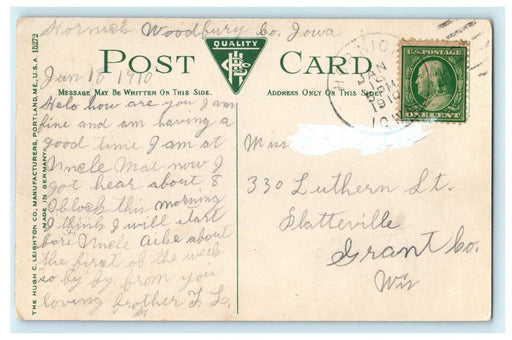 Hornick Woodbury Co. Iowa
QUALITY
POST CARD
Jan 10 1910
MESSAGE MAY BE WRITTEN ON THIS SIDE.
ADDRESS ONLY ON THIS SIDE.
Helo how are you I am
fine and am having a
good time I am at
Uncle Mat now I
got hear about 8
Oclock this morning
I think I will start
fore Uncle Ache about
the first of the week
so by by from you
loving brother F L.
Miss
330 Luthern St.
Platteville
Grant Co.
Wis
HORNICK
JAN
1910
IOWA
U.S. POSTAGE
ONE CENT
THE HUGH C. LEIGHTON CO., MANUFACTURERS, PORTLAND, ME., U.S.A. 15272
MADE IN GERMANY